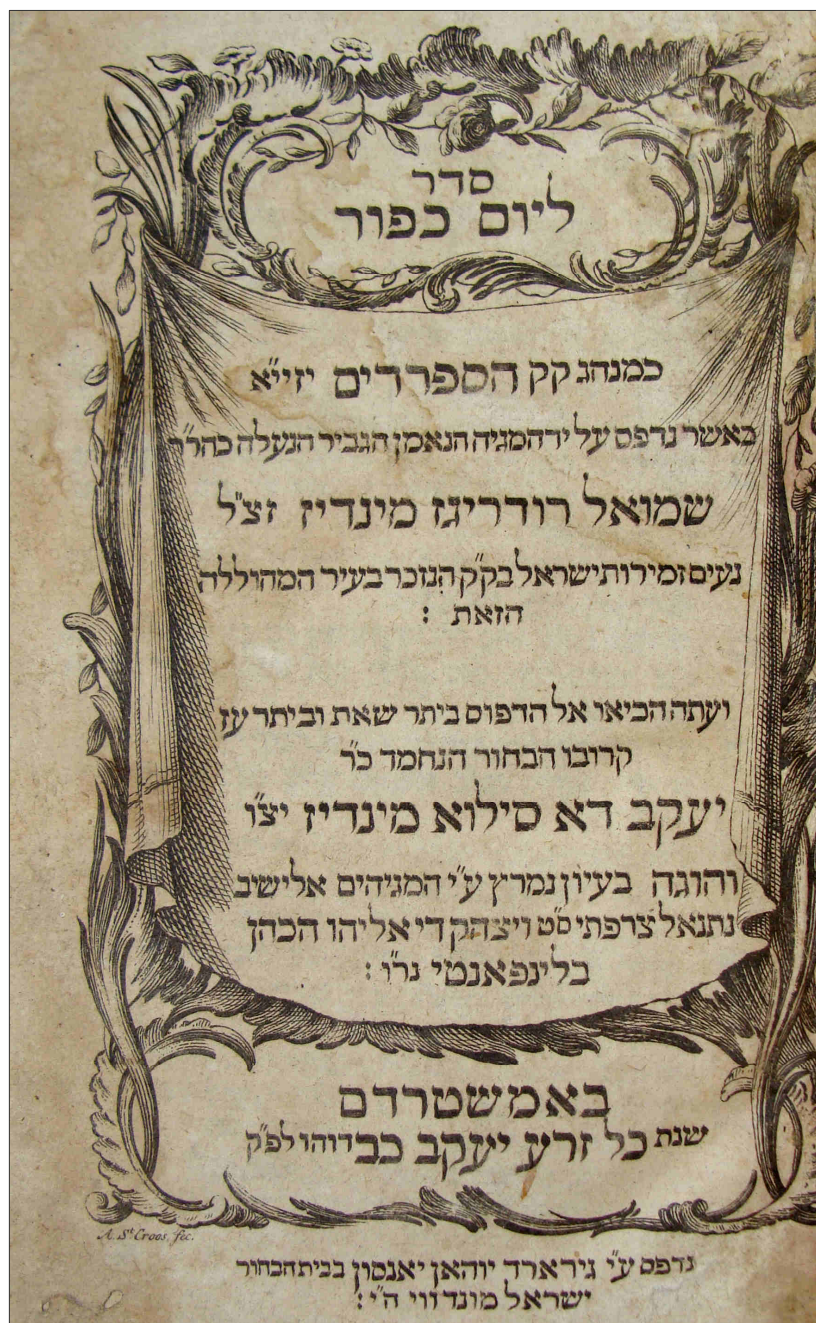 סדר
ליום כפור
כמנהג קק הספרדים יזיי״א
כאשר נדפס על יד המגיה הנאמן הגביר הנעלה כהר״ר
שמואל רודריגז מינדיז זצ״ל
נעים זמירות ישראל בק״ק הנזכר בעיר המהוללה
הזאת :
ועתה הביאו אל הדפוס ביתר שאת וביתר עז
קרובו הבחור הנחמד כ״ר
יעקב דא סילוא מינדיז יצ״ו
והוגה בעיון נמרץ ע״י המגיהים אלישיב
נתנאל צרפתי ס״ט ויצהק די אליהו הכהן
בלינפאנטי נר״ו :
באמשטרדם
שנת כל זרע יעקב כבדוהו לפ״ק
A. St. Croos, fec.
נדפס ע״י גירארד יוהאן יאנסון בבית הבחור
ישראל מונדווי ה״י :